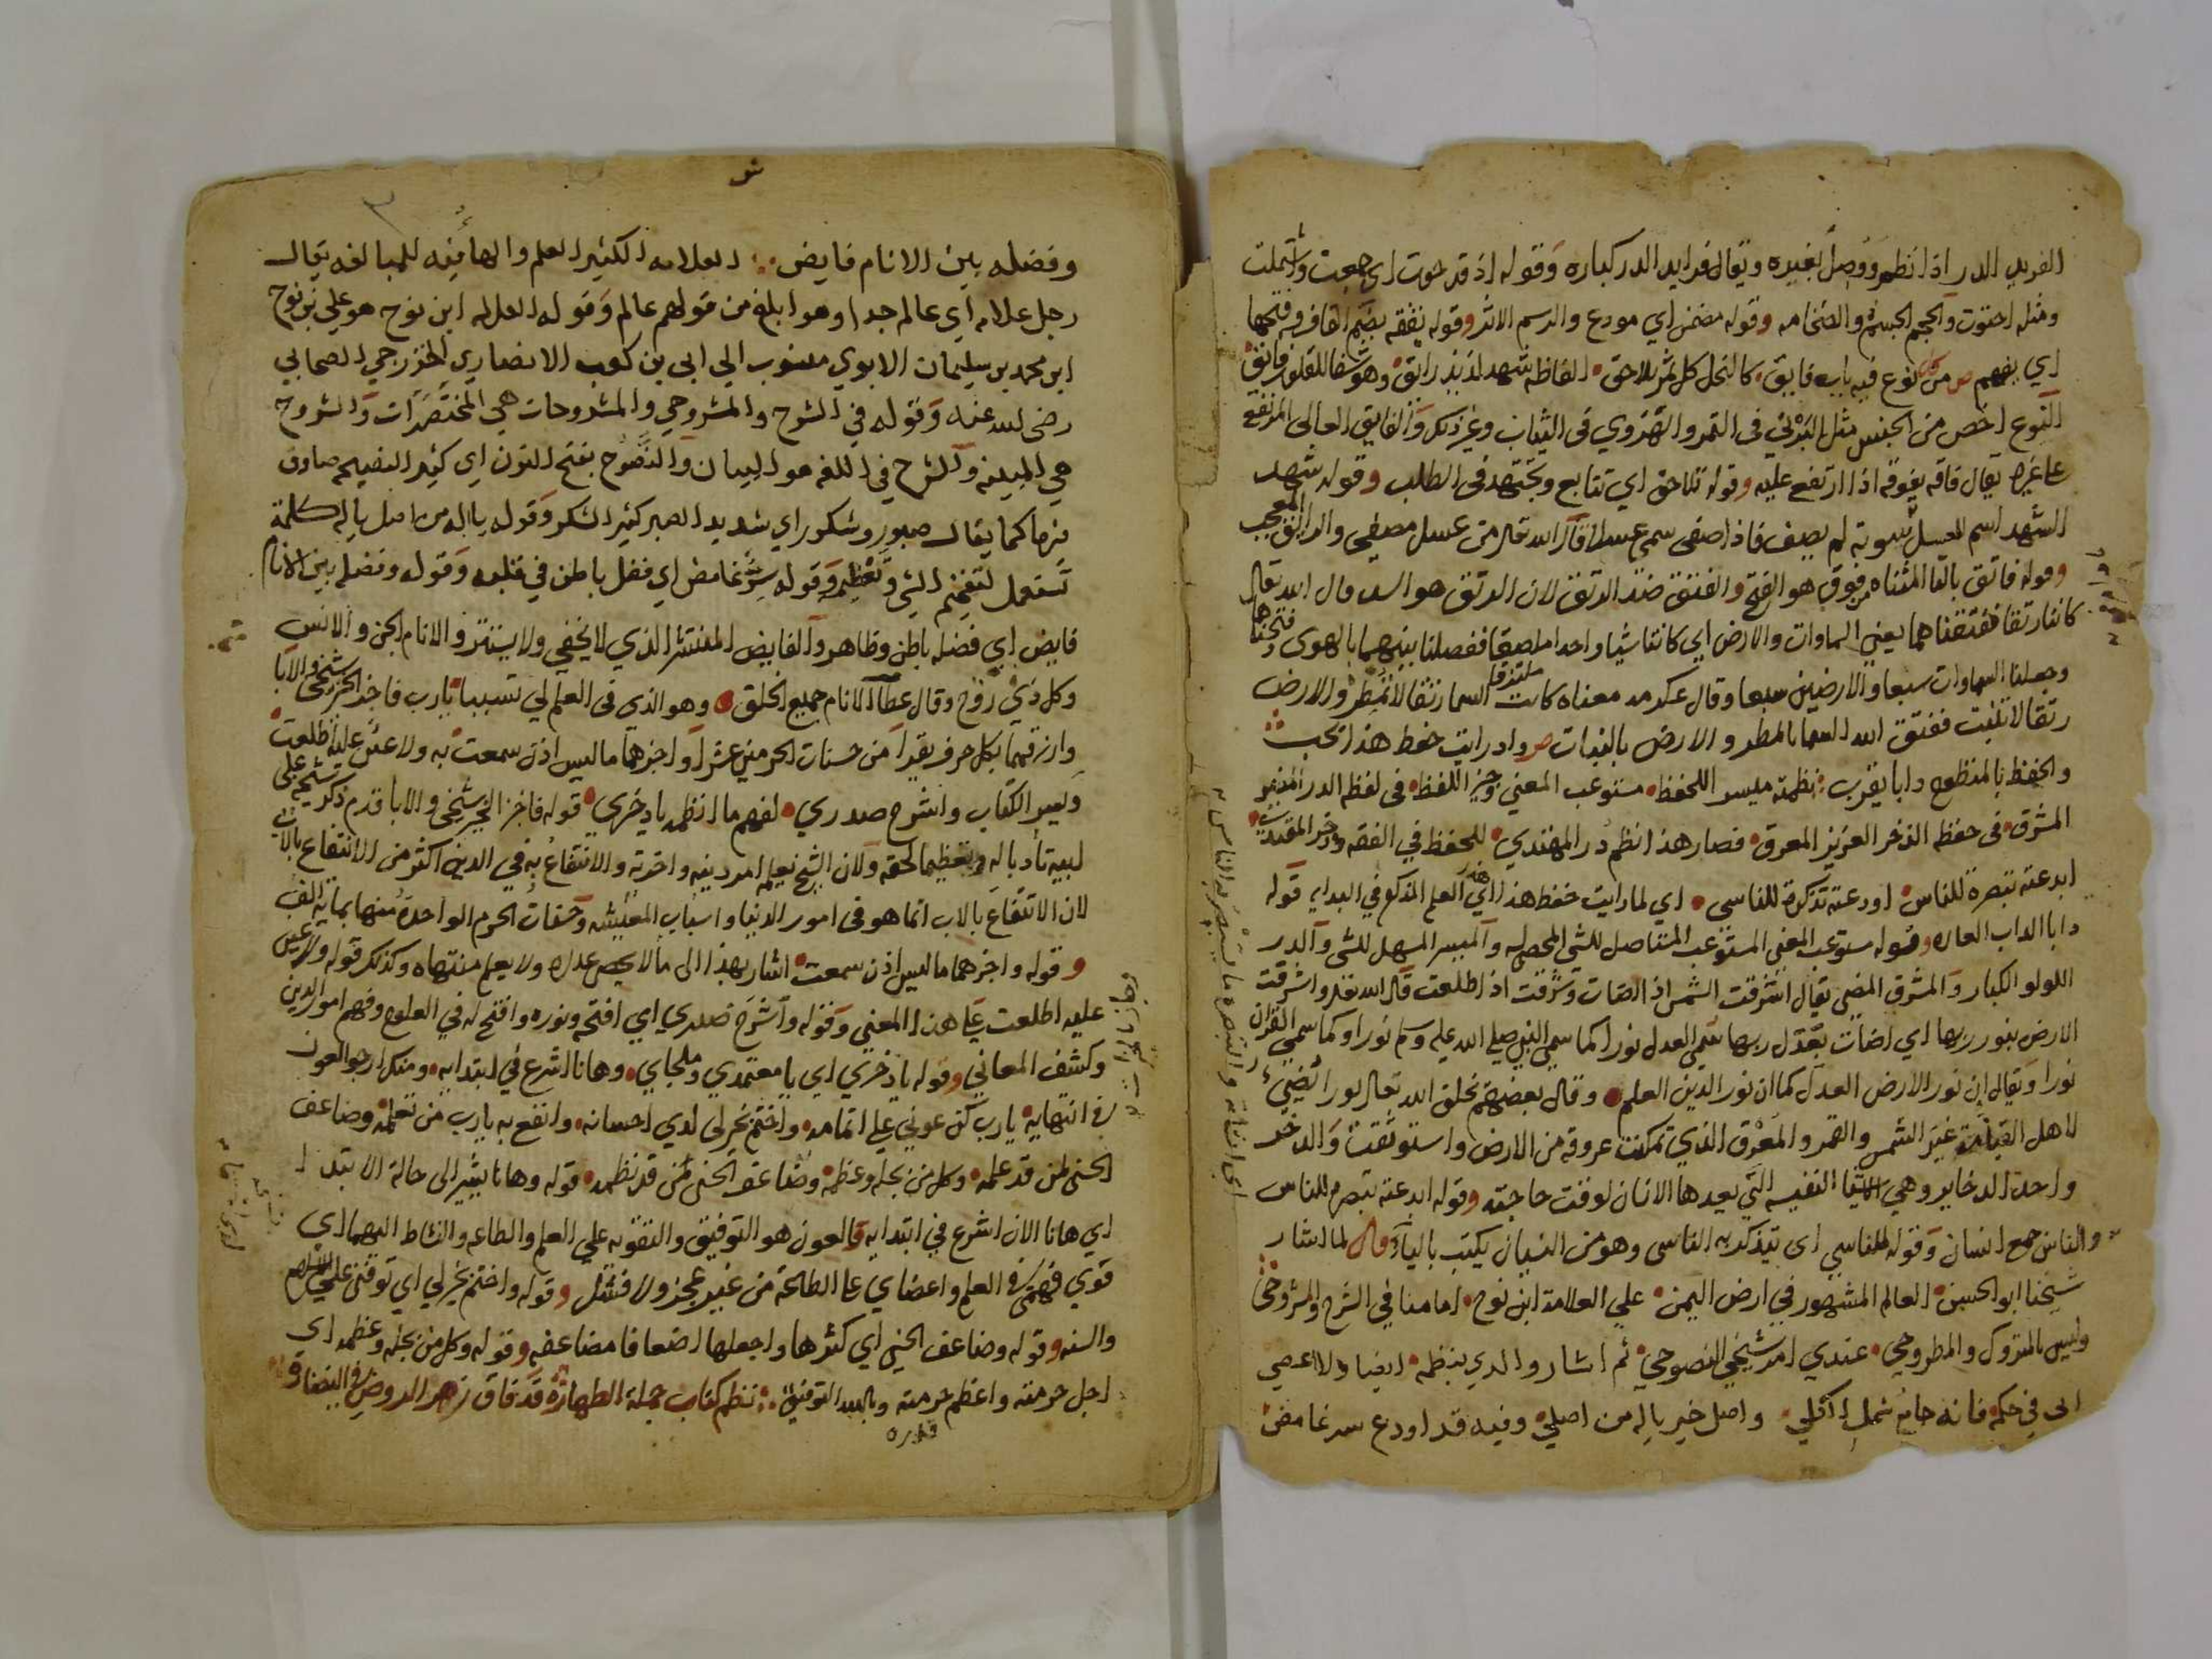 الفريد الدر اذا نظم ووصل بغيره ويقال فرايد الدر كباره وقوله اذ قد حوت اي جمعت وشتملت
ومثله احتوت والحجم الجسم والضخامه وقوله مضمن اي مودع والرسم الاثر وقوله يفقه بضم القاف وفتحها
اي يفهم ص من كل نوع فيه باب فايق كالنحل كل ثمر يلاحق الفاظه شهد لذيذ رايق وهو شفا للقلوب فاتق
النوع اخص من الجنس مثل البرني في التمر والهروي في الثياب وغير ذلك والفايق العالى المرتفع
على غيره يقال فاقه يفوقه اذا ارتفع عليه وقوله تلاحق اي تتابع وتجتهد في الطلب وقوله شهد
الشهد اسم للعسل بسوته لم يصف فاذا صفى سمى عسلا قال الله تعالى من عسل مصفى والرايق المعجب
وقوله فاتق بالتا المثناه من فوق هو الفتح والفتق ضد الرتق لان الرتق هو السد قال الله تعالى
كانتا رتقا ففتقناهما يعني السماوات والارض اي كانتا شيا واحدا ملصقا ففصلنا بينهما بالهوى وفتحناها
وجعلنا السماوات سبعا والارضين سبعا وقال عكرمه معناه كانت السما رتقا لا تمطر والارض
رتقا لا تنبت ففتق الله السما بالمطر والارض بالنبات ص واذ رايت حفظ هذا يجب
والحفظ بالمنظوم دابا يقرب نظمته ميسر اللحفظ مستوعب المعني وجيز اللفظ في لفظ الدر المنير
المشرق في حفظ الذخر العزيز المعرق فصار هذا نظم در المهتدي للحفظ في الفقه وذخر المقتدي
ابدعته تبصرة للناس اودعته تذكرة للناسي اي لما رايت حفظ هذا اي العلم المذكور في البدايه قوله
دابا الداب العاده وقوله مستوعب المعني المستوعب المستاصل للشي المحصل له والميسر المسهل للشى والدر
اللولو الكبار والمشرق المضي يقال اشرقت الشمس اذا اضات وشرقت اذا طلعت قال الله تعالى واشرقت
الارض بنور ربها اي اضات بعدل ربها سمي العدل نورا كما سمي النبي صلي الله عليه وسلم نورا وكما سمي القران
نورا ويقال ان نور الارض العدل كما ان نور الدين العلم وقال بعضهم يخلق الله تعالى نورا يضيء
لاهل القيامة غير الشمس والقمر والمعرق الذي تمكنت عروقه من الارض واستوثقت والذخر
واحد الذخاير وهي الاشيا النفيسه التي يعدها الانسان لوقت حاجته وقوله ابدعته تبصره للناس
والناس جمع انسان وقوله للناسي اى يتذكر به الناسى وهو من النسيان يكتب باليا وقال لما اشار
شيخنا ابو الحسن العالم المشهور في ارض اليمن علي العلامة ابن نوح امامنا في الشرح والمشروح
وليس بالمتروك والمطروح عندي امر شيخي النصوح ثم اشار والدي بنظمه ايضا ولا اعصي
ابي في حكمه فانه جامع شمل اكلي واصل خير ياله من اصلي وفيه قد اودع سر غامض
وفضله بين الانام فايض العلامه الكثير العلم والها فيه للمبالغه يقال
رجل علامه اي عالم جدا وهو ابلغ من قولهم عالم وقوله العلامه ابن نوح هو علي بن نوح
ابن محمد بن سليمان الابوي منسوب الي ابي بن كعب الانصاري الخزرجي الصحابي
رضى الله عنه وقوله في الشرح والمشروح والمشروحات هي المختصرات والشروح
هي المبينه والشرح في اللغه هو البيان والنصوح بفتح النون اي كثير النصيحه صادق
فيها كما يقال صبور وشكور اي شديد الصبر كثير الشكر وقوله ياله من اصل ياله كلمة
تستعمل لتفخيم الشي وتعظيمه وقوله سر غامض اي فضل باطن في قلبه وقوله وفضله بين الانام
فايض اي فضله باطن وظاهر والفايض المنتشر الذي لا يخفي ولا يستتر والانام الجن والانس
وكل ذي روح وقال عطا الانام جميع الخلق وهو الذي في العلم لي تسببا يارب فاجز الخير شيخي والابا
وارزقهما بكل حرف يقرا من حسنات الحرمين عشرا واجزهما ما ليس اذن سمعت به ولا عين عليه اطلعت
ويسر الكتاب واشرح صدري لفهم ما انظمه يا ذخري قوله فاجز الخير شيخي والابا قدم ذكر شيخه على
ابيه تادبا له وتعظيما لحقه ولان الشيخ يعلمه امر دينه واخرته والانتفاع به في الدين اكثر من الانتفاع بالاب
لان الانتفاع بالاب انما هو في امور الدنيا واسباب المعيشه وحسنات الحرم الواحدة منها بمائة الف
وقوله واجزهما ما ليس اذن سمعت اشار بهذا الى ما لا يحصى عدده ولا يعلم منتهاه وكذلك قوله ولا عين
عليه اطلعت علي هذا المعني وقوله واشرح صدري اي افتحه ونوره وافتح له في العلوم وفهم امور الدين
وكشف المعاني وقوله يا ذخري اي يا معتمدي وملجاي وها انا اشرع في ابتدايه ومنك ارجو العون
في انتهايه يارب كن عوني علي اتمامه واختم بخير لي لدي احسانه وانفع به يارب من تعلمه وضاعف
الحسنى لمن قد علمه وكل من بجله وعظمه وضاعف الحسنى لمن قد نظمه قوله وها انا يشير الى حالة الابتدا
اي ها انا الان اشرع في ابتدايه والعون هو التوفيق والتقويه علي العلم والطاعه والنشاط اليهما اي
قوي فهمى في العلم واعضاي على الطاعة من غير عجز ولا فشل وقوله واختم بخير لي اي توفني على الاسلام
والسنه وقوله وضاعف الحسنى اي كثرها واجعلها اضعافا مضاعفه وقوله وكل من بجله وعظمه اي
اجل حرمته واعظم حرمته وبالله التوفيق نظم كتاب جملة الطهارة قد فاق زهر الروض في النضارة